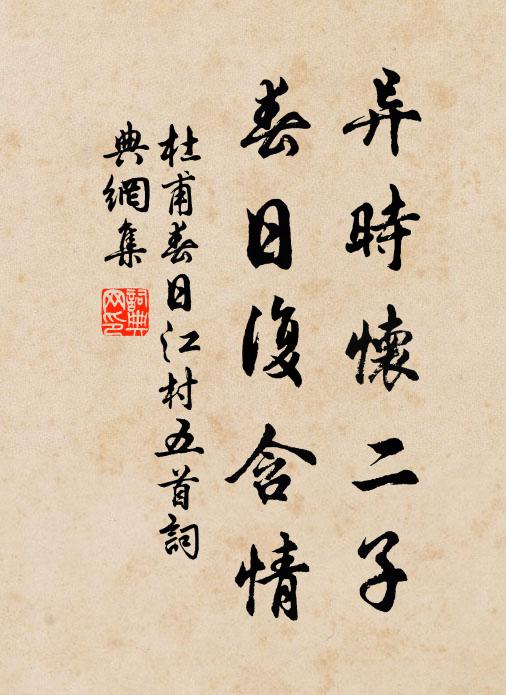 异時懷二子
春日復含情
杜甫春日江村五首詞
典網集
詞典網印